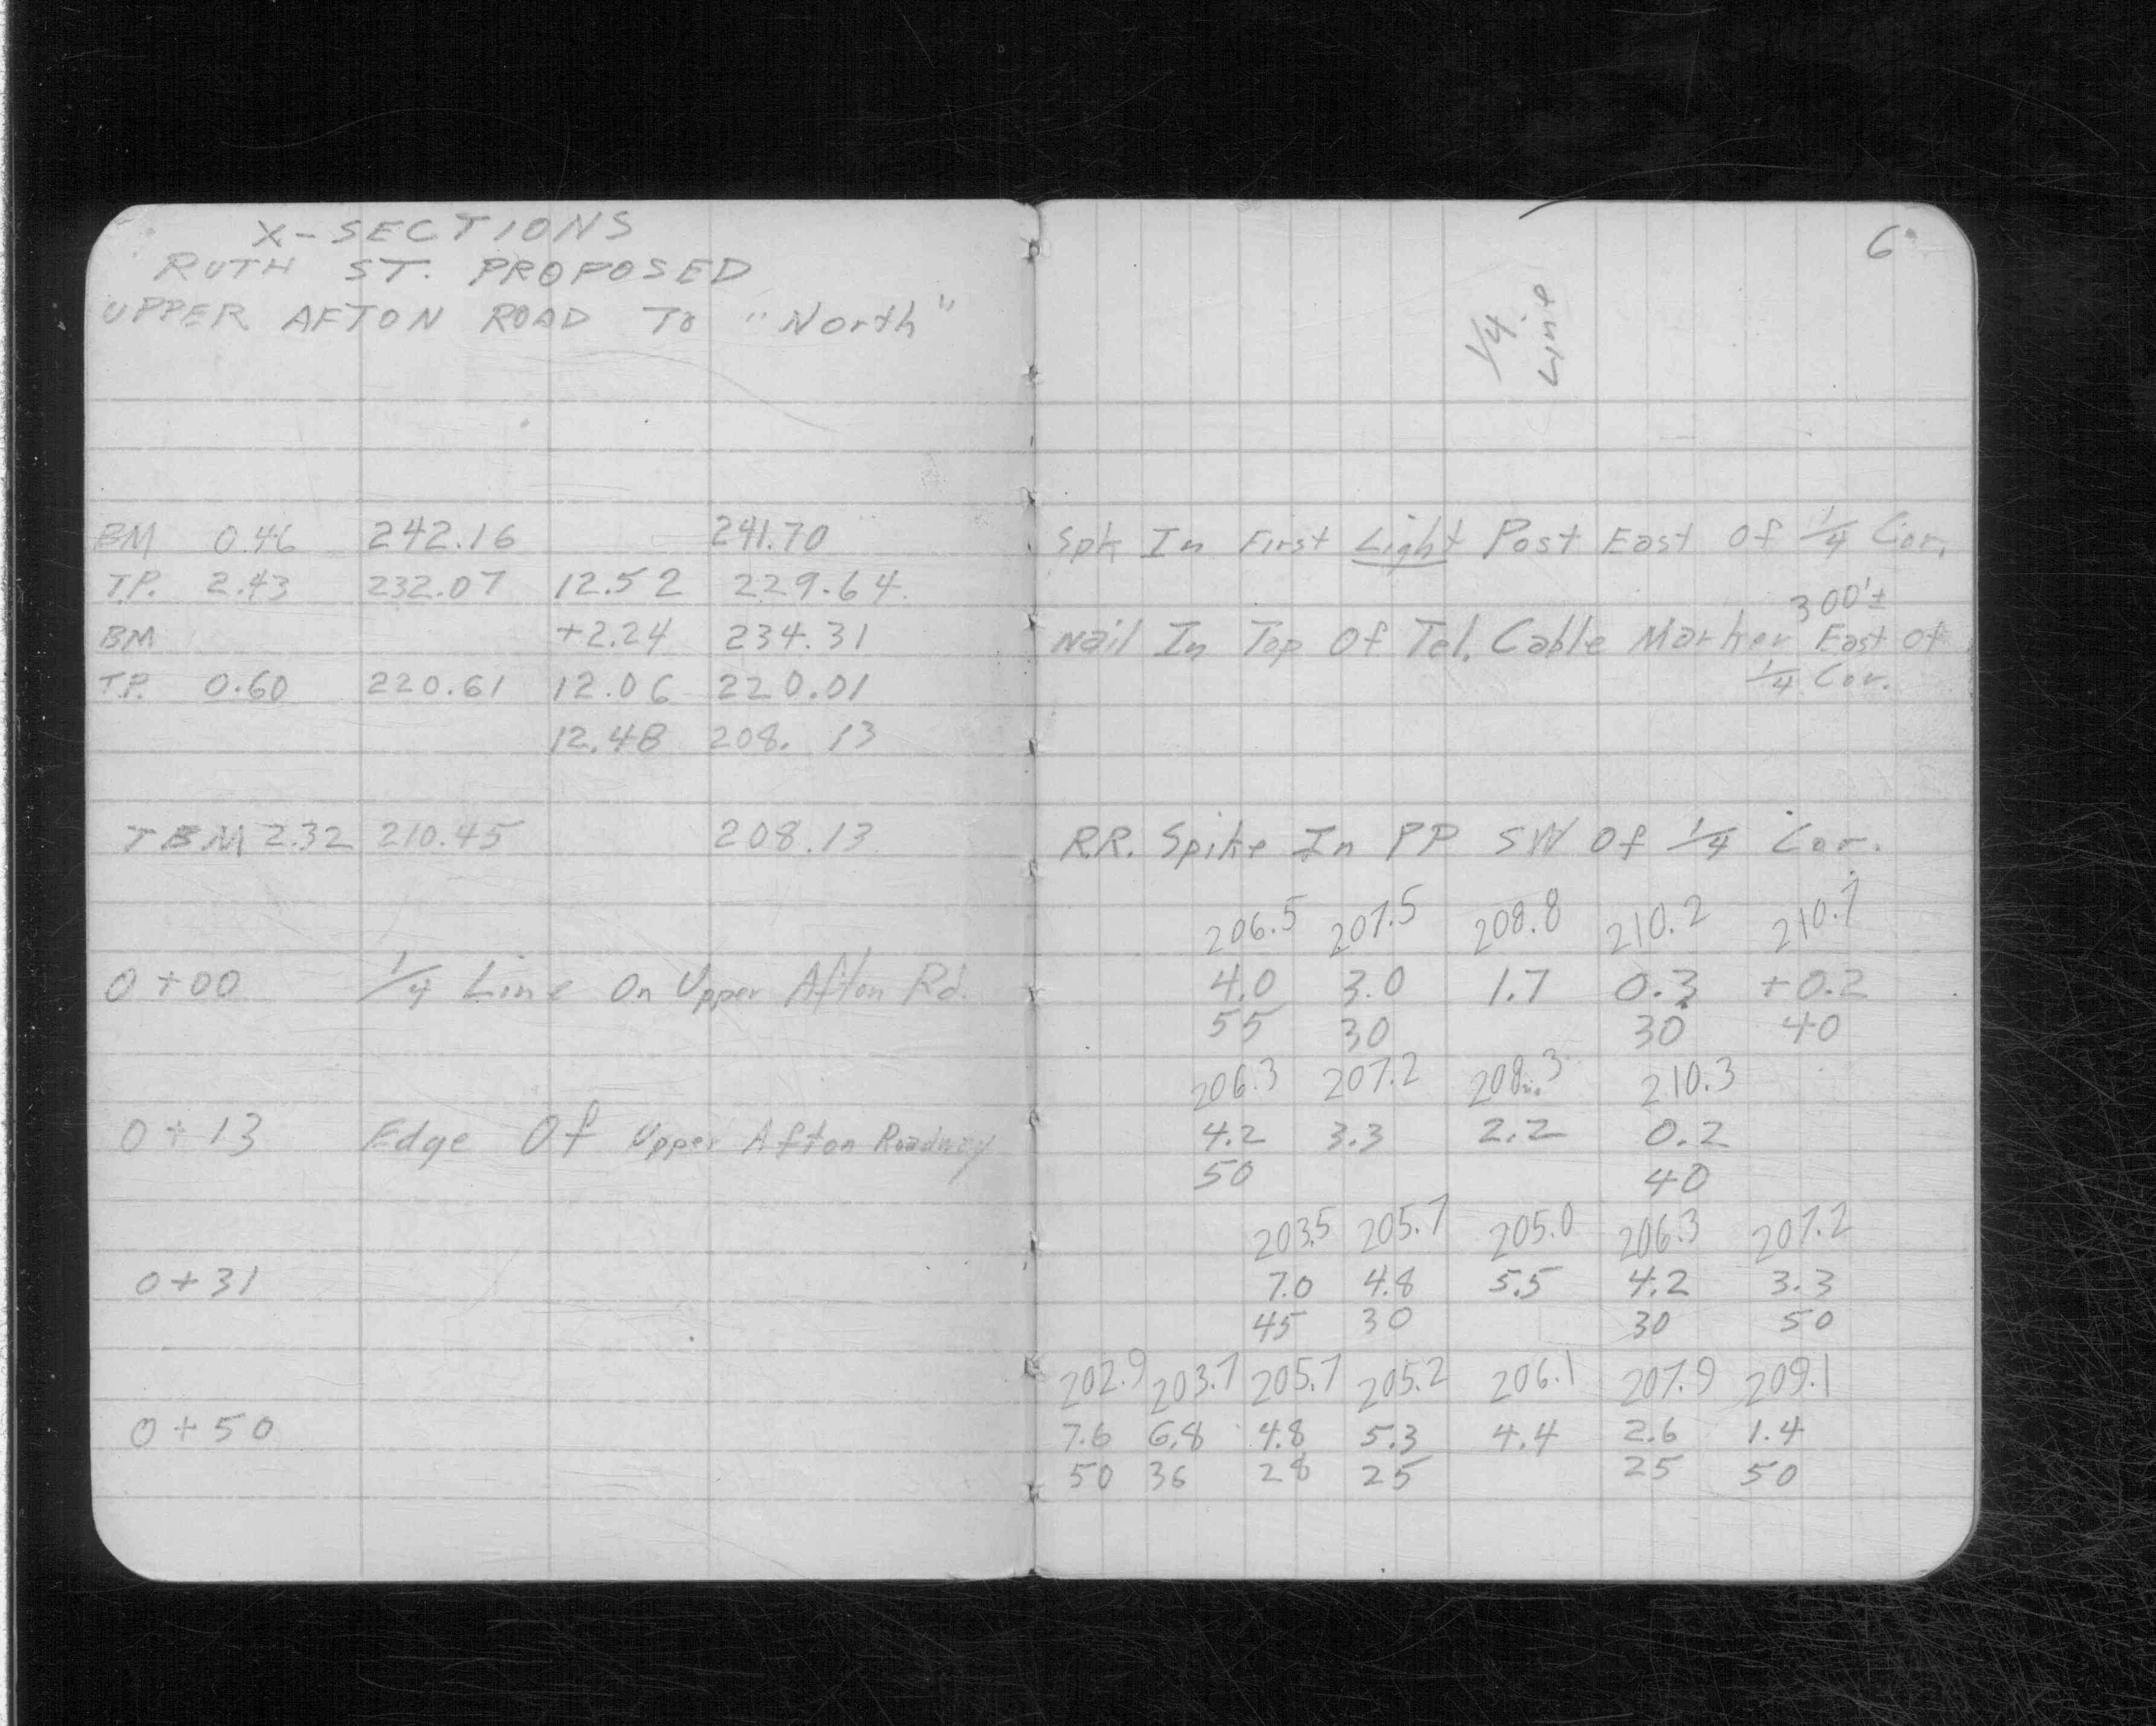 X-SECTIONS
RUTH ST. PROPOSED
UPPER AFTON ROAD TO "North"
BM 0.46 242.16 241.70
T.P. 2.43 232.07 12.52 229.64
BM +2.24 234.31
T.P. 0.60 220.61 12.06 220.01
12.48 208.13
TBM 2.32 210.45 208.13
0+00 1/4 Line On Upper Afton Rd.
0+13 Edge Of Upper Afton Roadway
0+31
0+50
6
1/4
Line
Spk In First Light Post East Of 1/4 Cor.
300'±
Nail In Top Of Tel. Cable Marker East Of
1/4 Cor.
R.R. Spike In PP SW Of 1/4 Cor.
206.5 207.5 208.8 210.2 210.7
4.0 3.0 1.7 0.3 +0.2
55 30 30 40
206.3 207.2 208.3 210.3
4.2 3.3 2.2 0.2
50 40
203.5 205.7 205.0 206.3 207.2
7.0 4.8 5.5 4.2 3.3
45 30 30 50
202.9 203.7 205.7 205.2 206.1 207.9 209.1
7.6 6.8 4.8 5.3 4.4 2.6 1.4
50 36 28 25 25 50